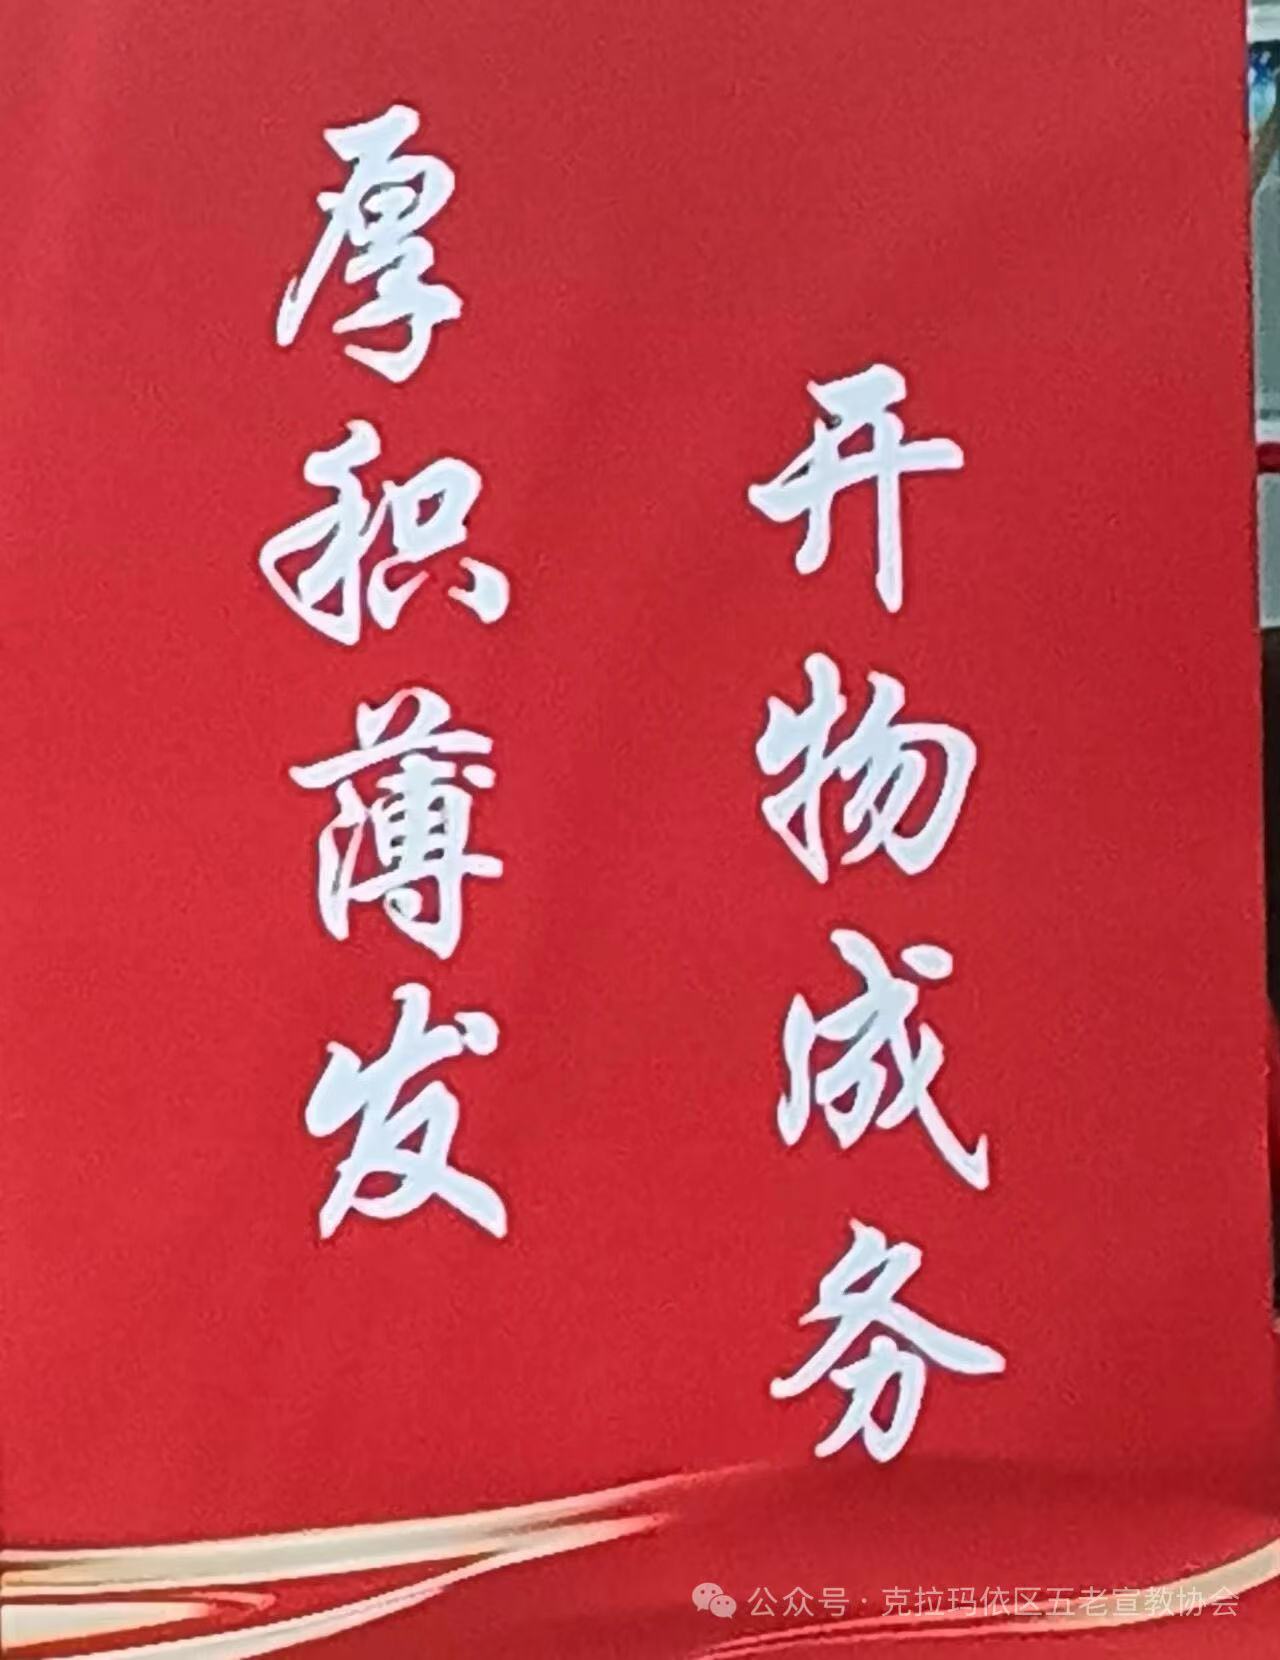 厚积薄发
开物成务
公众号·克拉玛依区五老宣教协会